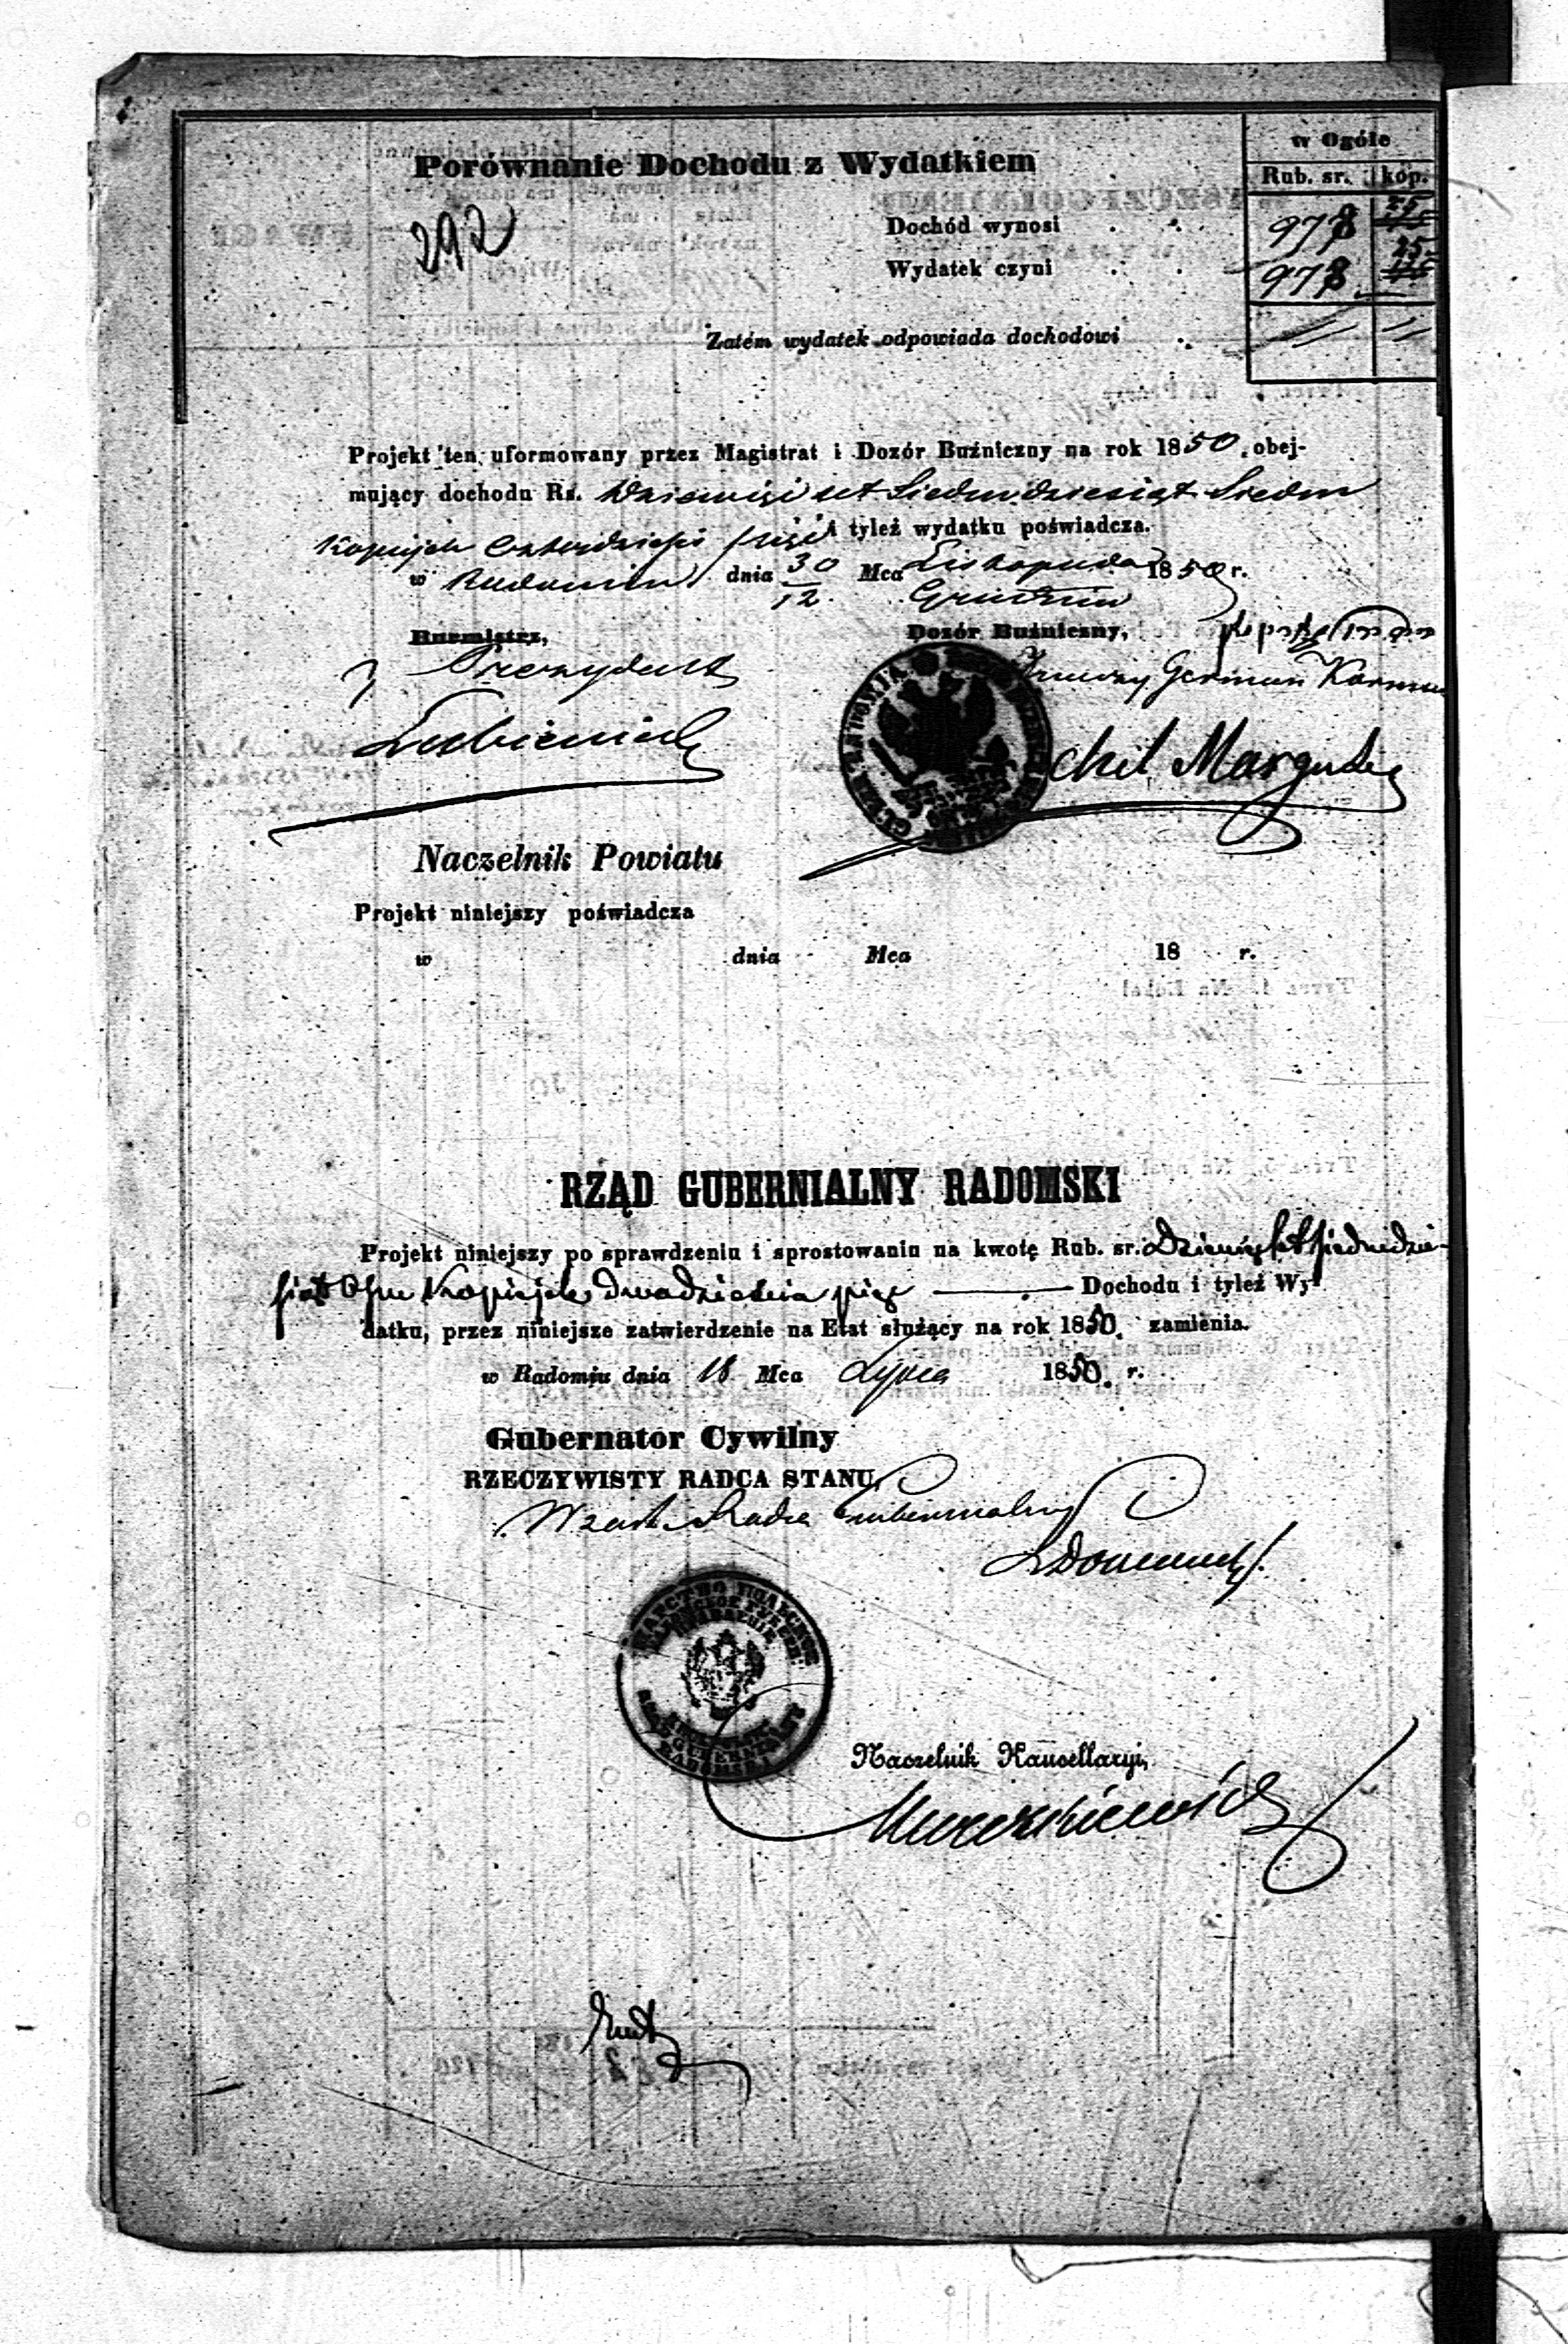 Porównanie Dochodu z Wydatkiem
w Ogóle
Rub. sr. kop.
292
Dochód wynosi . . 978 25
Wydatek czyni . . 978 25
Zatém wydatek odpowiada dochodowi . .
Projekt ten, uformowany przez Magistrat i Dozór Buźniczny na rok 1850. obej-
mujący dochodu Rs. Dziewięćset Siedmdziesiąt Siedm
Kopiejek Czterdzieści pięć i tyleż wydatku poświadcza.
w Radomiu dnia 30/12 Mca Listopada/Grudnia 1850 r.
Burmistrz, Dozór Buźniczny,
Prezydent
German
Chil
Naczelnik Powiatu
Projekt niniejszy poświadcza
w dnia Mca 18 r.
RZĄD GUBERNIALNY RADOMSKI
Projekt niniejszy po sprawdzeniu i sprostowaniu na kwotę Rub. sr. Dziewięćset siedmdzie-
siąt Ośm Kopiejek dwadzieścia pięć — Dochodu i tyleż Wy-
datku, przez niniejsze zatwierdzenie na Etat służący na rok 1850. zamienia.
w Radomiu dnia 18 Mca Lipca 1850. r.
Gubernator Cywilny
RZECZYWISTY RADCA STANU,
W zast. Radca Gubernialny
RZĄD GUBERNIALNY
RADOMSKI
Naczelnik Kancellaryi,